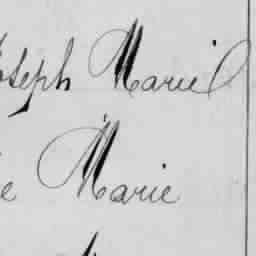 oseph Marie
e Marie